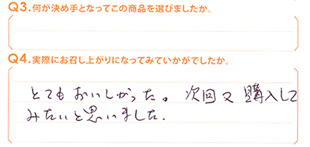 Q3.何が決め手となってこの商品を選びましたか。
Q4.実際にお召し上がりになってみていかがでしたか。
とてもおいしかった。次回又購入して
みたいと思いました.